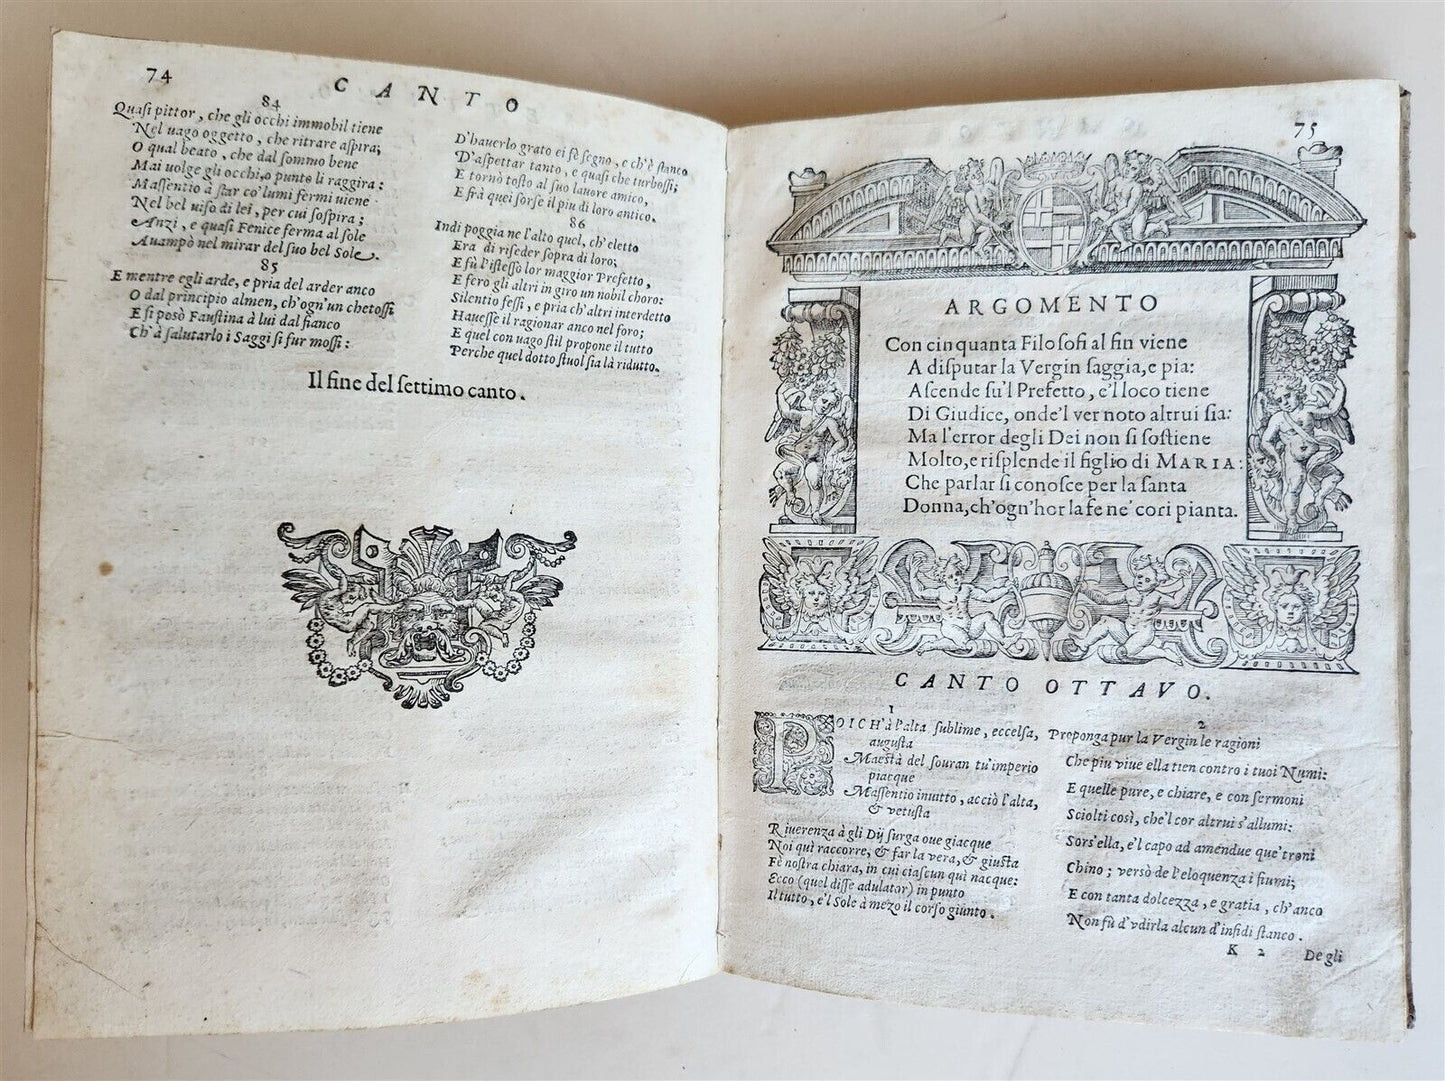 74
CANTO
84
Quasi pittor, che gli occhi immobil tiene
Nel uago oggetto, che ritrare aspira;
O qual beato, che dal sommo bene
Mai uolge gli occhi, o punto li raggira:
Massentio à star co' lumi fermi uiene
Nel bel uiso di lei, per cui sospira;
Anzi, e quasi Fenice ferma al sole
Auampò nel mirar del suo bel Sole.
85
E mentre egli arde, e pria del arder anco
O dal principio almen, ch'ogn'un chetossi
E si posò Faustina à lui dal fianco
Ch'à salutarlo i Saggi si fur mossi:
D'hauerlo grato ei fè segno, e ch'è stanco
D'aspettar tanto, e quasi che turbossi;
E tornò tosto al suo lauore amico,
E frà quei sorse il piu di loro antico.
86
Indi poggia ne l'alto quel, ch'eletto
Era di riseder sopra di loro;
E fù l'istesso lor maggior Prefetto,
E fero gli altri in giro un nobil choro:
Silentio fessi, e pria ch'altri interdetto
Hauesse il ragionar anco nel foro;
E quel con uago stil propone il tutto
Perche quel dotto stuol sia là ridutto.
Il fine del settimo canto.
75
ARGOMENTO
Con cinquanta Filosofi al fin viene
A disputar la Vergin saggia, e pia:
Ascende su'l Prefetto, e'l loco tiene
Di Giudice, onde'l ver noto altrui sia:
Ma l'error degli Dei non si sostiene
Molto, e risplende il figlio di MARIA:
Che parlar si conosce per la santa
Donna, ch'ogn'hor la fe ne' cori pianta.
CANTO OTTAVO.
1
POICH'à l'alta sublime, eccelsa,
augusta
Maestà del souran tu'imperio
piacque
Massentio inuitto, acciò l'alta,
& vetusta
Riuerenza à gli Dij surga oue giacque
Noi quì raccorre, & far la vera, & giusta
Fè nostra chiara, in cui ciascun quì nacque:
Ecco (quel disse adulator) in punto
Il tutto, e'l Sole à mezo il corso giunto.
2
Proponga pur la Vergin le ragioni
Che piu viue ella tien contro i tuoi Numi:
E quelle pure, e chiare, e con sermoni
Sciolti così, che'l cor altrui s'allumi:
Sors'ella, e'l capo ad amendue que' troni
Chino; versò de l'eloquenza i fiumi;
E con tanta dolcezza, e gratia, ch'anco
Non fù d'vdirla alcun d'infidi stanco.
K 2
De gli